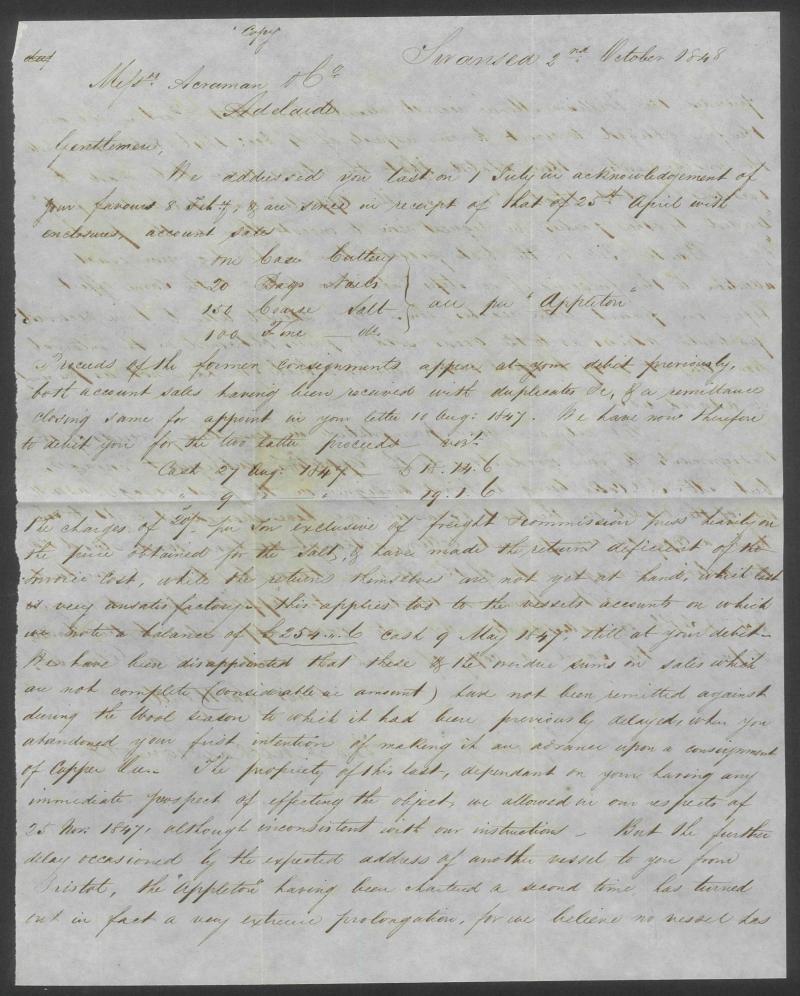 Copy
Swansea 2nd October 1848
Messrs Acraman & Co
Adelaide
Gentlemen,
We addressed you last on 1 July in acknowledgement of
your favours 8 Feby, & are since in receipt of that of 25th April with
enclosures, account sales
one Case Cutlery
20 Bags Nails
150 Coarse Salt
100 Fine — do.
all per "Appleton"
Proceeds of the former consignments appear at your debit previously,
both account sales having been received with duplicates &c, & a remittance
closing same for appoint in your letter 10 Aug: 1847. We have now therefore
to debit you for the two latter proceeds vizt.
Cash 27 Aug: 1847 — £ 18.14.6
" 9 " " 19.1.6
The charges of 20/- per Ton exclusive of freight & commission press heavily on
the price obtained for the Salt, & have made the return deficient of the
Invoice Cost, while the returns themselves are not yet at hand, which last
is very unsatisfactory — this applies too to the vessels accounts on which
we note a balance of £254.. .6 cash 9 May 1847 still at your debit —
We have been disappointed that these & the overdue sums on sales which
are not complete (considerable in amount) have not been remitted against
during the Wool season to which it had been previously delayed, when you
abandoned your first intention of making it an advance upon a consignment
of Copper Ore. The propriety of this last, dependant on your having any
immediate prospect of effecting the object, we allowed in our respects of
25 Nov: 1847, although inconsistent with our instructions — But the further
delay occasioned by the expected address of another vessel to you from
Bristol, the "Appleton" having been chartered a second time, has turned
out in fact a very extreme prolongation, for we believe no vessel has